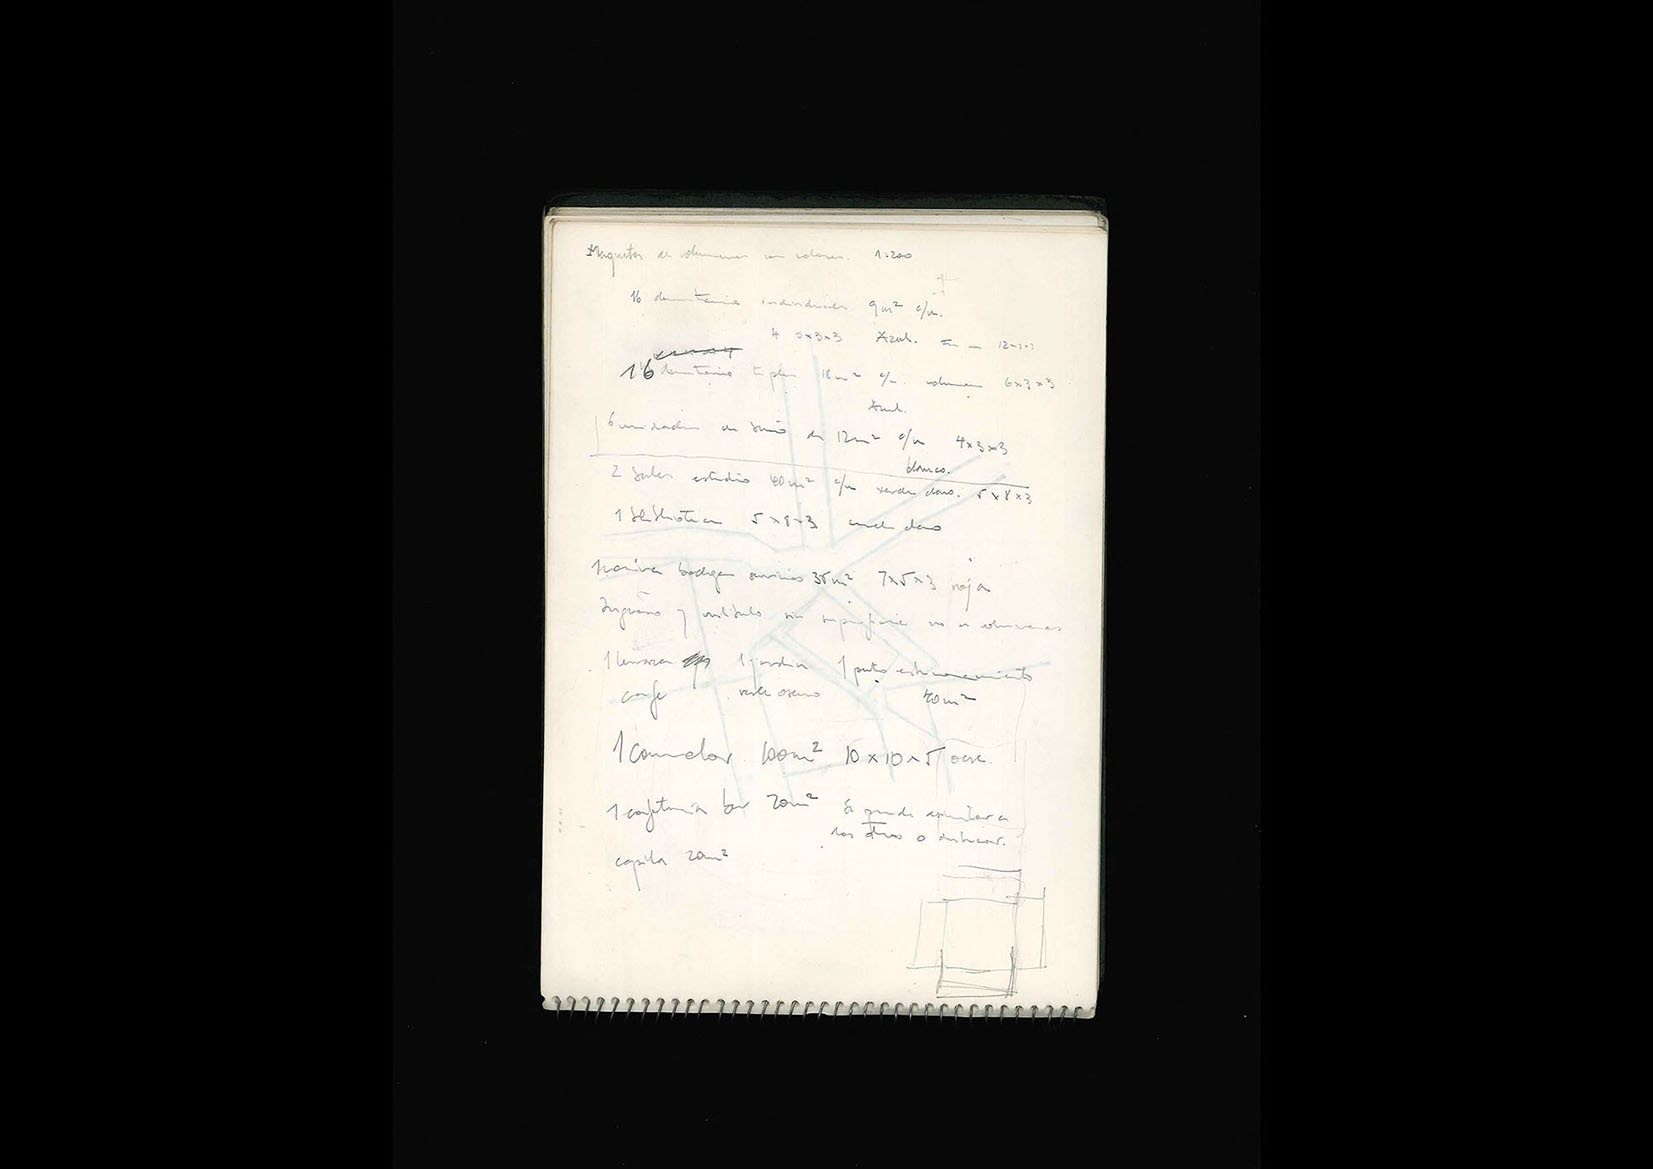 Maquetas de volumenes con colores. 1:200
16 dormitorios individuales 9m² c/u.
3x3x3 Azul. En un
16 dormitorios triples 18m² c/u. volumen 6x3x3
Azul.
6 unidades de baño de 12m² c/u 4x3x3
blanco.
2 salas estudio 40m² c/u verde claro. 5x8x3
1 biblioteca 5x8x3 verde claro
1 cocina bodega servicios 35m² 7x5x3 roja
Ingreso y vestíbulo sin superficie no en volumenes
1 terraza 1 jardin 1 patio estacionamiento
cafe verde oscuro 40m²
1 comedor 100m² 10x10x5 ocre.
1 cafeteria bar 20m² Se puede
los otros o
capilla 20m²